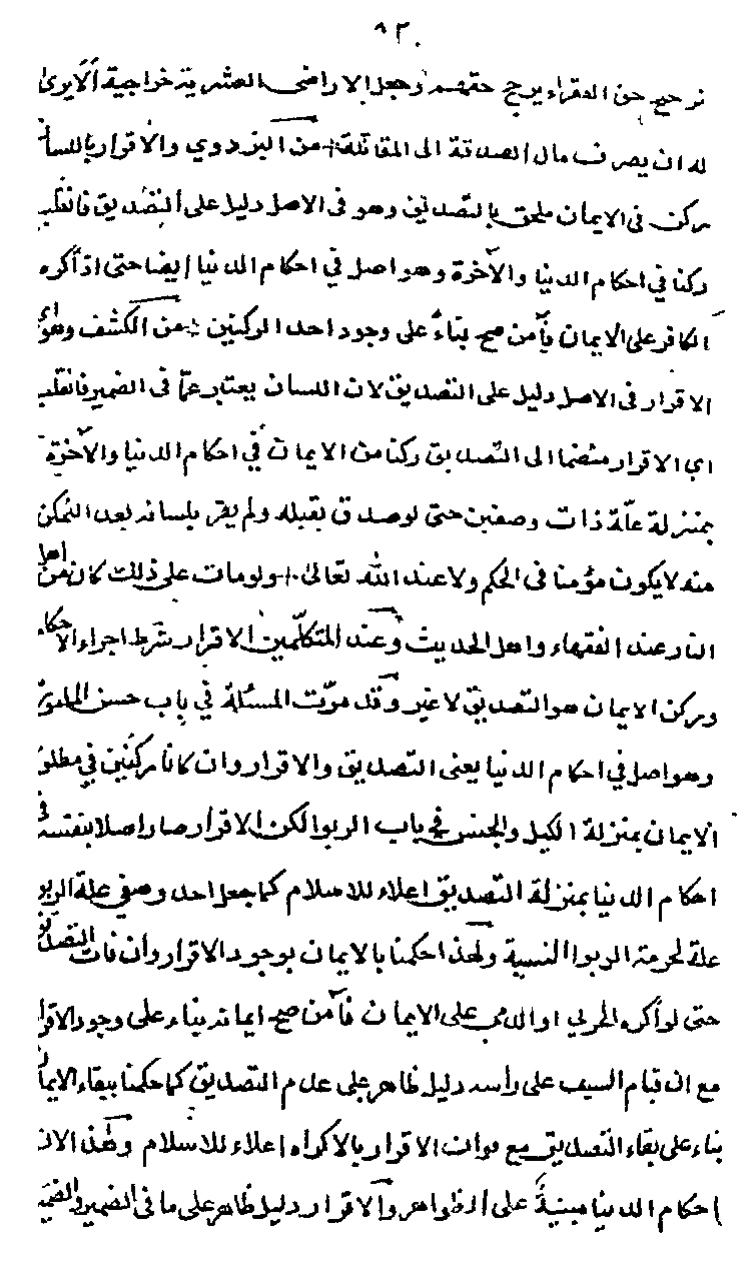 ٨٢.
ترجيح حق الفقراء يرجح حقهم وجعل الاراضى العشرية خراجية ألا يرى
له ان يصرف مال الصدقة الى المقاتلة من البزدوي والاقرار باللسان
ركن فى الايمان ملحق بالتصديق وهو فى الاصل دليل على التصديق فانقلب
ركنا في احكام الدنيا والآخرة وهو اصل في احكام الدنيا ايضا حتى اذا أكره
الكافر على الايمان فآمن صح بناءً على وجود احد الركنين من الكشف وهو اى
الاقرار فى الاصل دليل على التصديق لان اللسان يعتبر عمّا فى الضمير فانقلب
اي الاقرار منضما الى التصديق ركنا من الايمان في احكام الدنيا والآخرة
بمنزلة علّة ذات وصفين حتى لو صدق بقبله ولم يقر بلسانه بعد التمكن
منه لا يكون مؤمنا فى الحكم ولا عند الله تعالى ولو مات على ذلك كان من اهل
النار عند الفقهاء واهل الحديث وعند المتكلّمين الاقرار شرط اجراء الاحكام
وركن الايمان هو التصديق لا غير وقد مرّت المسئلة في باب حسن المأمور
وهو اصل في احكام الدنيا يعنى التصديق والاقرار وان كانا ركنين في مطلق
الايمان بمنزلة الكيل والجنس في باب الربوا لكن الاقرار صار اصلا بنفسه فى
احكام الدنيا بمنزلة التصديق اعلاء للاسلام كما جعل احد وصفي علة الربو
علة لحرمة الربوا النسية ولهذا حكمنا بالايمان بوجود الاقرار وان فات التصديق
حتى لو أكره الحربي او الذمي على الايمان فآمن صح ايمانه بناء على وجود الاقرا
مع ان قيام السيف على رأسه دليل ظاهر على عدم التصديق كما حكمنا ببقاء الايمان
بناء على بقاء التصديق مع فوات الاقرار بالاكراه اعلاء للاسلام وهذا لان
احكام الدنيا مبنيةٌ على الظواهر والاقرار دليل ظاهر على ما فى الضمير